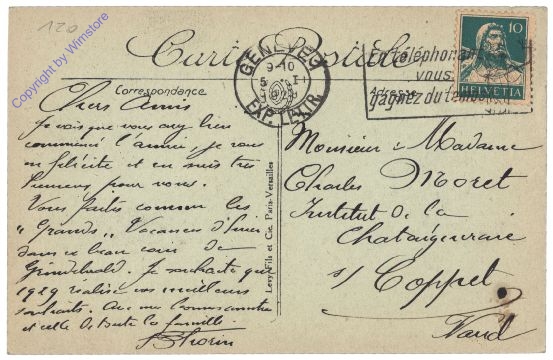 120
Copyright by Wimstore
Carte Postale
Correspondance
Adresse
GENÈVE 6
9-10
EXP. LETTR.
En téléphonant
vous
gagnez du temps
10
HELVETIA
Chers Amis
Je vois que vous avez bien
commencé l'année, je vous
en félicite et en suis très
heureux pour vous.
Vous faites comme les
"Grands" Vacances d'hiver
dans ce beau coin de
Grindelwald. Je souhaite que
1929 réalise vos meilleurs
souhaits. Avec mes
et celles de toute la famille.
Levy Fils et Cie, Paris-Versailles
Monsieur & Madame
Charles Moret
Institut de la
Chataigneraie
s/ Coppet
Vaud